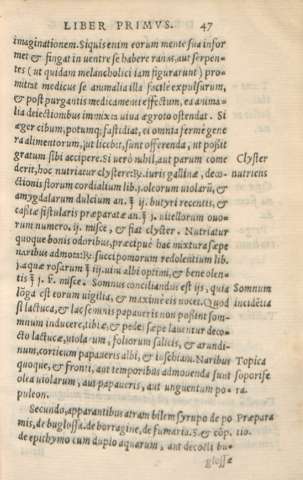 LIBER PRIMVS. 47
imaginationem. Siquis enim eorum mente sua infor
met & fingat in uentre se habere ranas, aut serpen-
tes (ut quidam melancholici iam figurarunt) pro-
mittat medicus se animalia illa facile expulsurum,
& post purgantis medicamenti effectum, ea anima-
lia deiectionibus immixta uiua agroto ostendat. Si
æger cibum, potumq; fastidiat, ei omnia ferme gene
ra alimentorum, ut licebit, sunt offerenda, ut possit
gratum sibi accipere. Si uerò nihil, aut parum come Clyster
derit, hoc nutriatur clystere: ℞. iuris gallinæ, deco- nutriens
ctionis florum cordialium lib. j. oleorum uiolarū, &
amygdalarum dulcium an. ℥ ij. butyri recentis, &
cassiæ fistularis præparatæ an. ℥ j. uitellorum ouo-
rum numero. ij. misce, & fiat clyster. Nutriatur
quoque bonis odoribus, præcipuè hac mixtura sæpe
naribus admota: ℞. succi pomorum redolentium lib.
j. aquæ rosarum ℥ iij. uini albi optimi, & bene olen-
tis ℥ j. ß. misce. Somnus conciliandus est ijs, quia Somnum
lōga est eorum uigilia, & maximè eis nocet. Quod incidētia
si lactuca, & lac seminis papaueris non possint som-
mnum inducere, tibiæ, & pedes sæpe lauentur deco-
cto lactucæ, uiolarum, foliorum salicis, & arundi-
num, corticum papaueris albi, & iuschiami. Naribus Topica
quoque, & fronti, aut temporibus admouenda sunt soporife
olea uiolarum, aut papaueris, aut unguentum po- ra.
puleon.
Secundo, apparantibus atram bilem syrupo de po Præpara
mis, de buglossa, de borragine, de fumaria. S. & cōp. tio.
de epithymo cum duplo aquarum, aut decocti bu-
glossæ